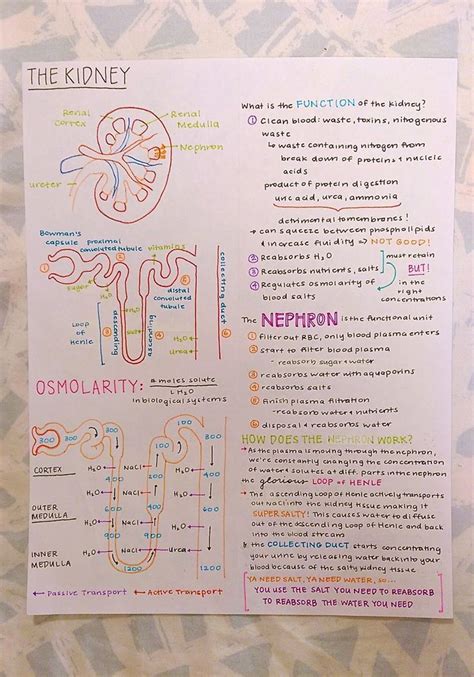 THE KIDNEY
Renal Cortex
Renal Medulla
Nephron
ureter
What is the FUNCTION of the kidney?
① Clean blood: waste, toxins, nitrogenous
waste
↳ waste containing nitrogen from
break down of proteins & nucleic
acids
product of protein digestion
uric acid, urea, ammonia
detrimental to membranes!
→ can squeeze between phospholipids
& increase fluidity → NOT GOOD!
② Reabsorbs H₂O
③ Reabsorbs nutrients, salts
④ Regulates osmolarity of
blood salts
must retain
BUT!
in the
right
concentrations
Bowman's capsule
proximal convoluted tubule
vitamins
sugar
distal convoluted tubule
collecting duct
Loop of Henle
descending
ascending
H₂O
urea
① ② ③ ④ ⑤ ⑥
The NEPHRON is the functional unit
① filter out RBC, only blood plasma enters
② start to filter blood plasma
- reabsorb sugar & water
③ reabsorbs water with aquaporins
④ reabsorbs salts
⑤ finish plasma filtration
- reabsorb water & nutrients
⑥ disposal & reabsorb water
OSMOLARITY: # moles solute
L H₂O
in biological systems
300 300 300 100 100 300
CORTEX
H₂O NaCl H₂O
400 200 400
OUTER MEDULLA
H₂O NaCl H₂O
600 400 600
H₂O NaCl H₂O
900 700 900
INNER MEDULLA
H₂O NaCl Urea
1200 1200
← Passive Transport
← Active Transport
HOW DOES THE NEPHRON WORK?
→ As the plasma is moving through the nephron,
we're constantly changing the concentration
of water & solutes at diff. parts in the nephron
the glorious LOOP OF HENLE
→ The ascending loop of Henle actively transports
out NaCl into the kidney tissue making it
SUPER SALTY! This causes water to diffuse
out of the descending Loop of Henle and back
into the blood stream
the COLLECTING DUCT starts concentrating
your urine by releasing water back into your
blood because of the salty kidney tissue
YA NEED SALT, YA NEED WATER, SO...
YOU USE THE SALT YOU NEED TO REABSORB
TO REABSORB THE WATER YOU NEED